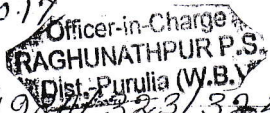 0.17
Officer-in-Charge
RAGHUNATHPUR P.S.
Dist.-Purulia (W.B.)
323/32